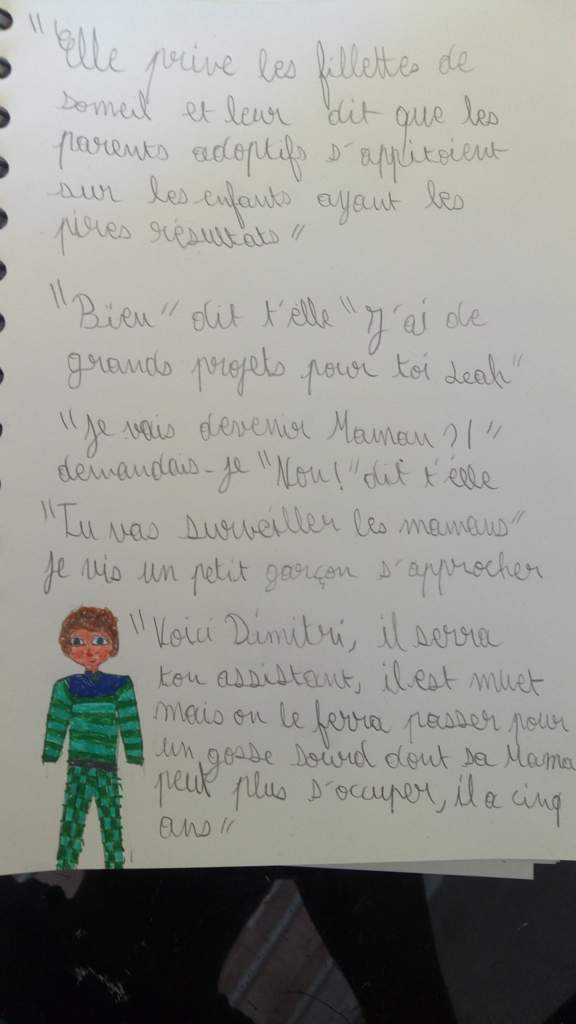 "Elle prive les fillettes de
someil et leur dit que les
parents adoptifs s'appitoient
sur les enfants ayant les
pires résultats"
"Bien" dit t'elle "J'ai de
grands projets pour toi Leah"
"Je vais devenir Maman ?!"
demandais-je "Non!" dit t'elle
"Tu vas surveiller les mamans"
Je vis un petit garçon s'approcher
"Voici Dimitri, il serra
ton assistant, il est muet
mais on le ferra passer pour
un gosse sourd dont sa Mama
peut plus s'occuper, il a cinq
ans"